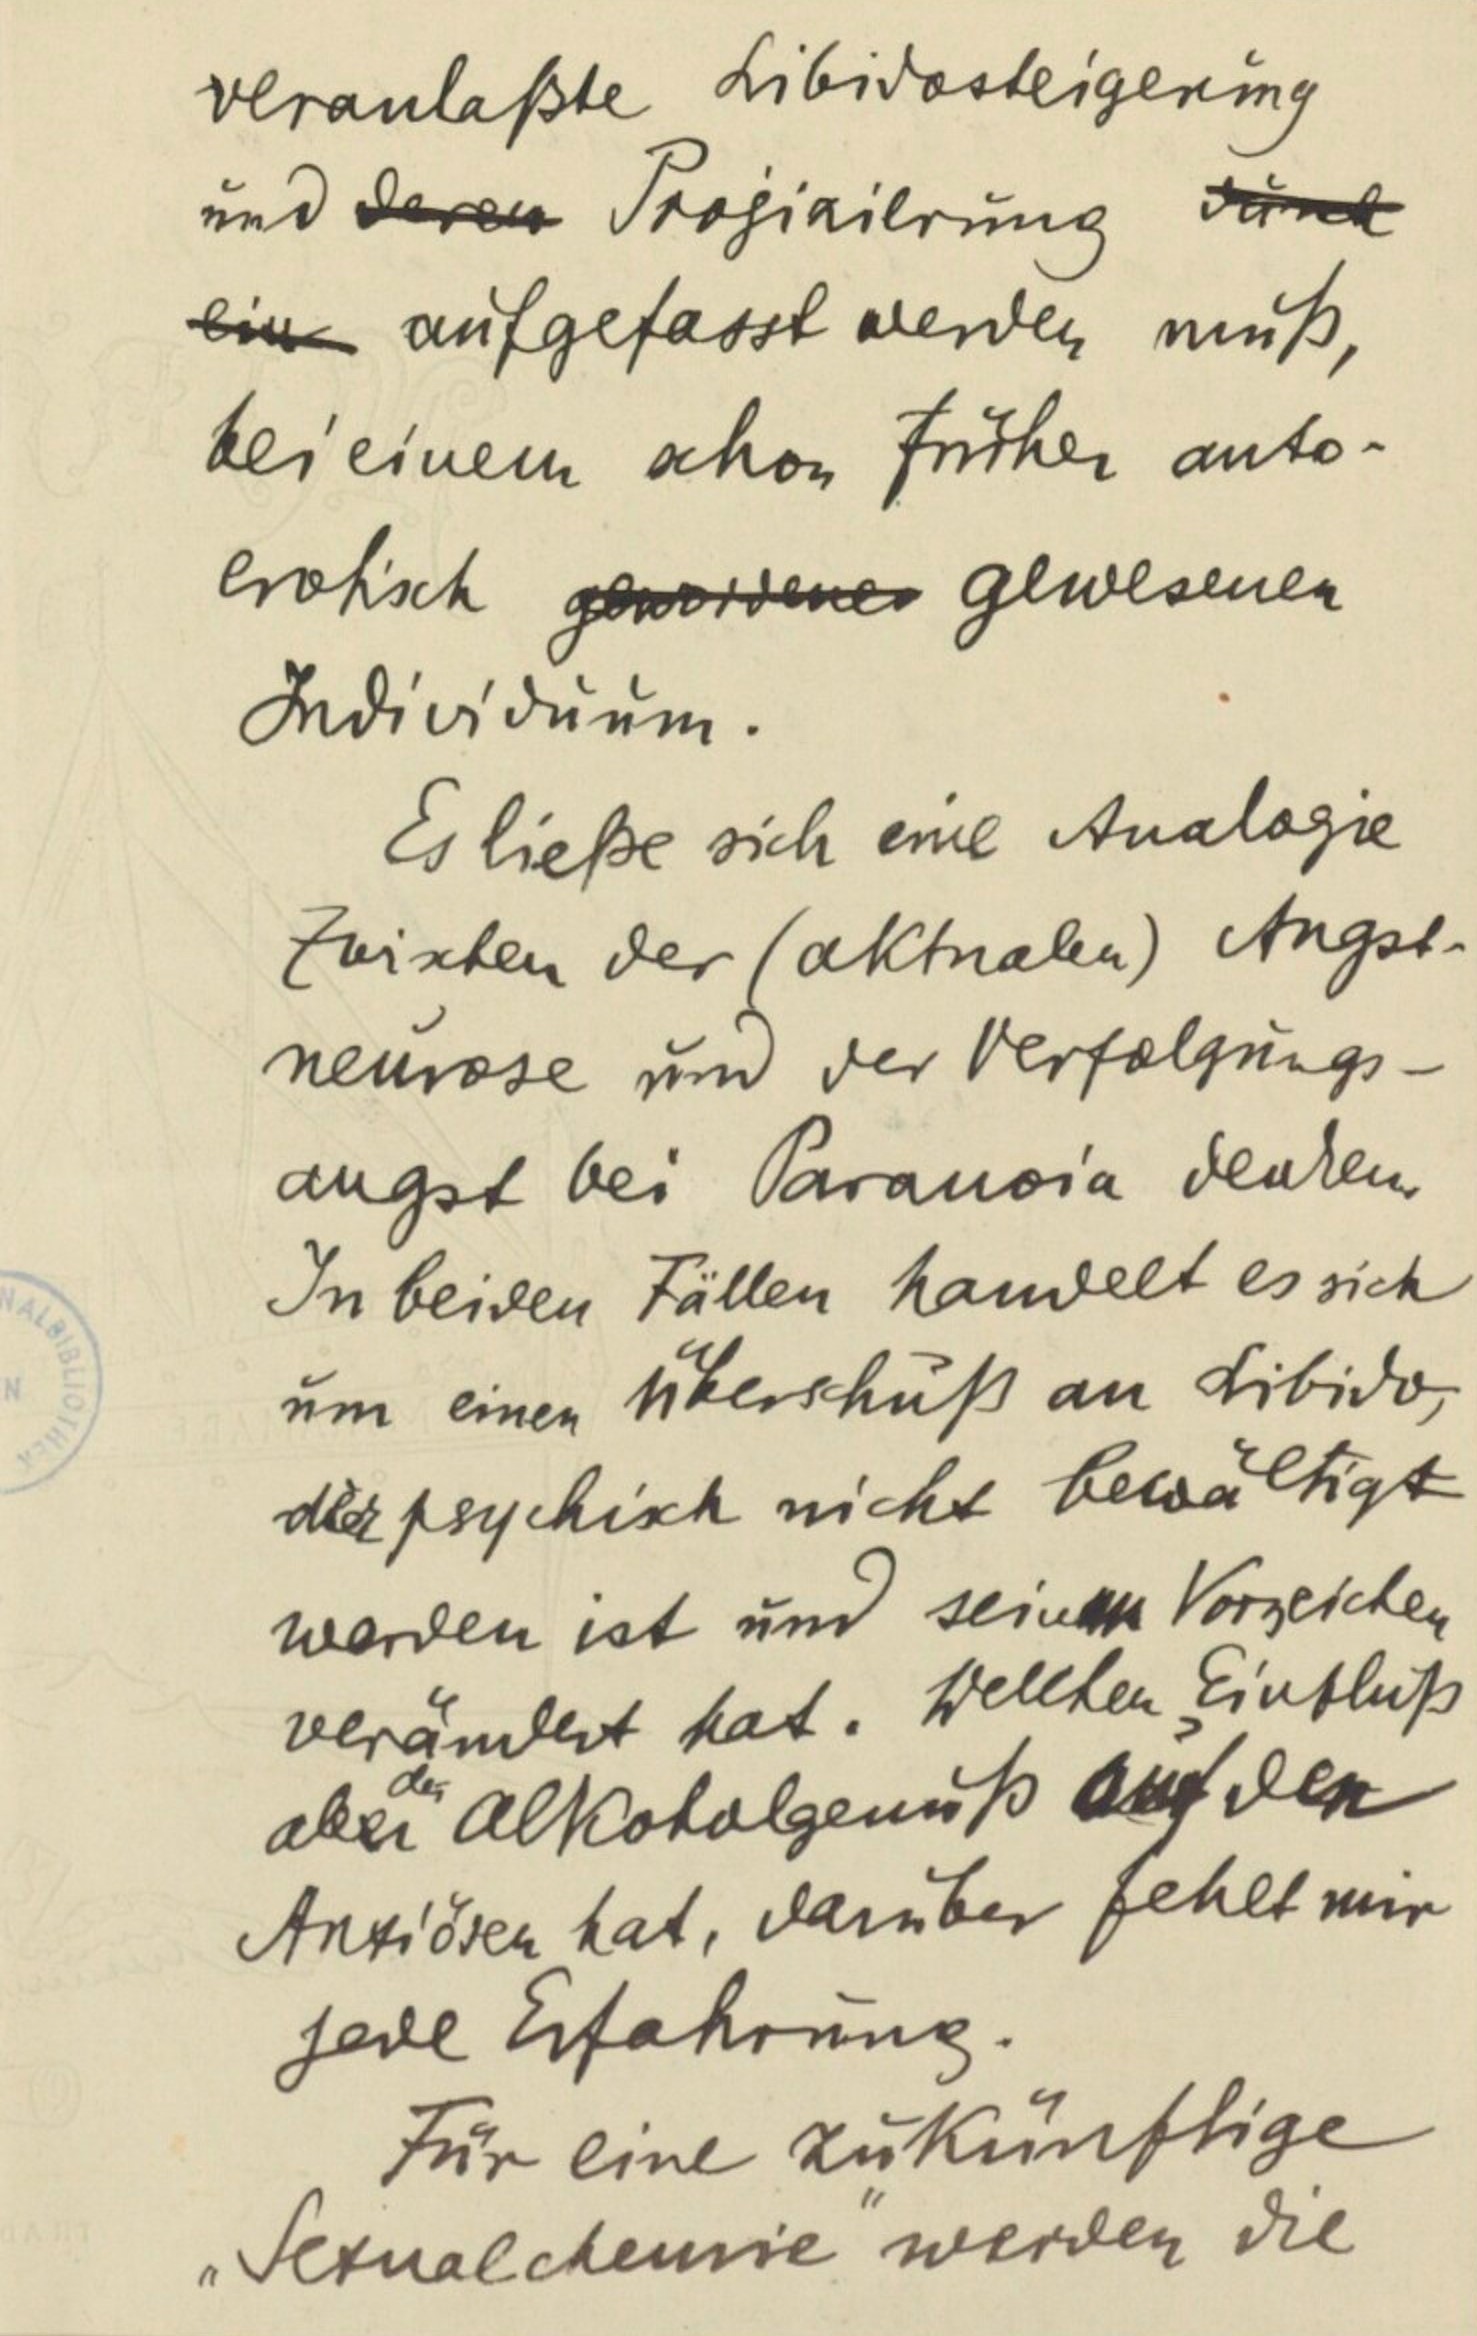 veranlaßte Libidosteigerung
und deren Projizierung durch
ein aufgefasst werden muß,
bei einem schon früher auto-
erotisch gewordenen gewesenen
Individuum.
Es ließe sich eine Analogie
zwischen der (aktualen) Angst-
neurose und der Verfolgungs-
angst bei Paranoia denken.
In beiden Fällen handelt es sich
um einen Überschuß an Libido,
der psychisch nicht bewältigt
worden ist und seinen Vorzeichen
verändert hat. Welchen Einfluß
aber der Alkoholgenuß auf den
Anxiösen hat, darüber fehlt mir
jede Erfahrung.
Für eine zukünftige
„Sexualchemie" werden die
NALBIBLIOTHEK
N